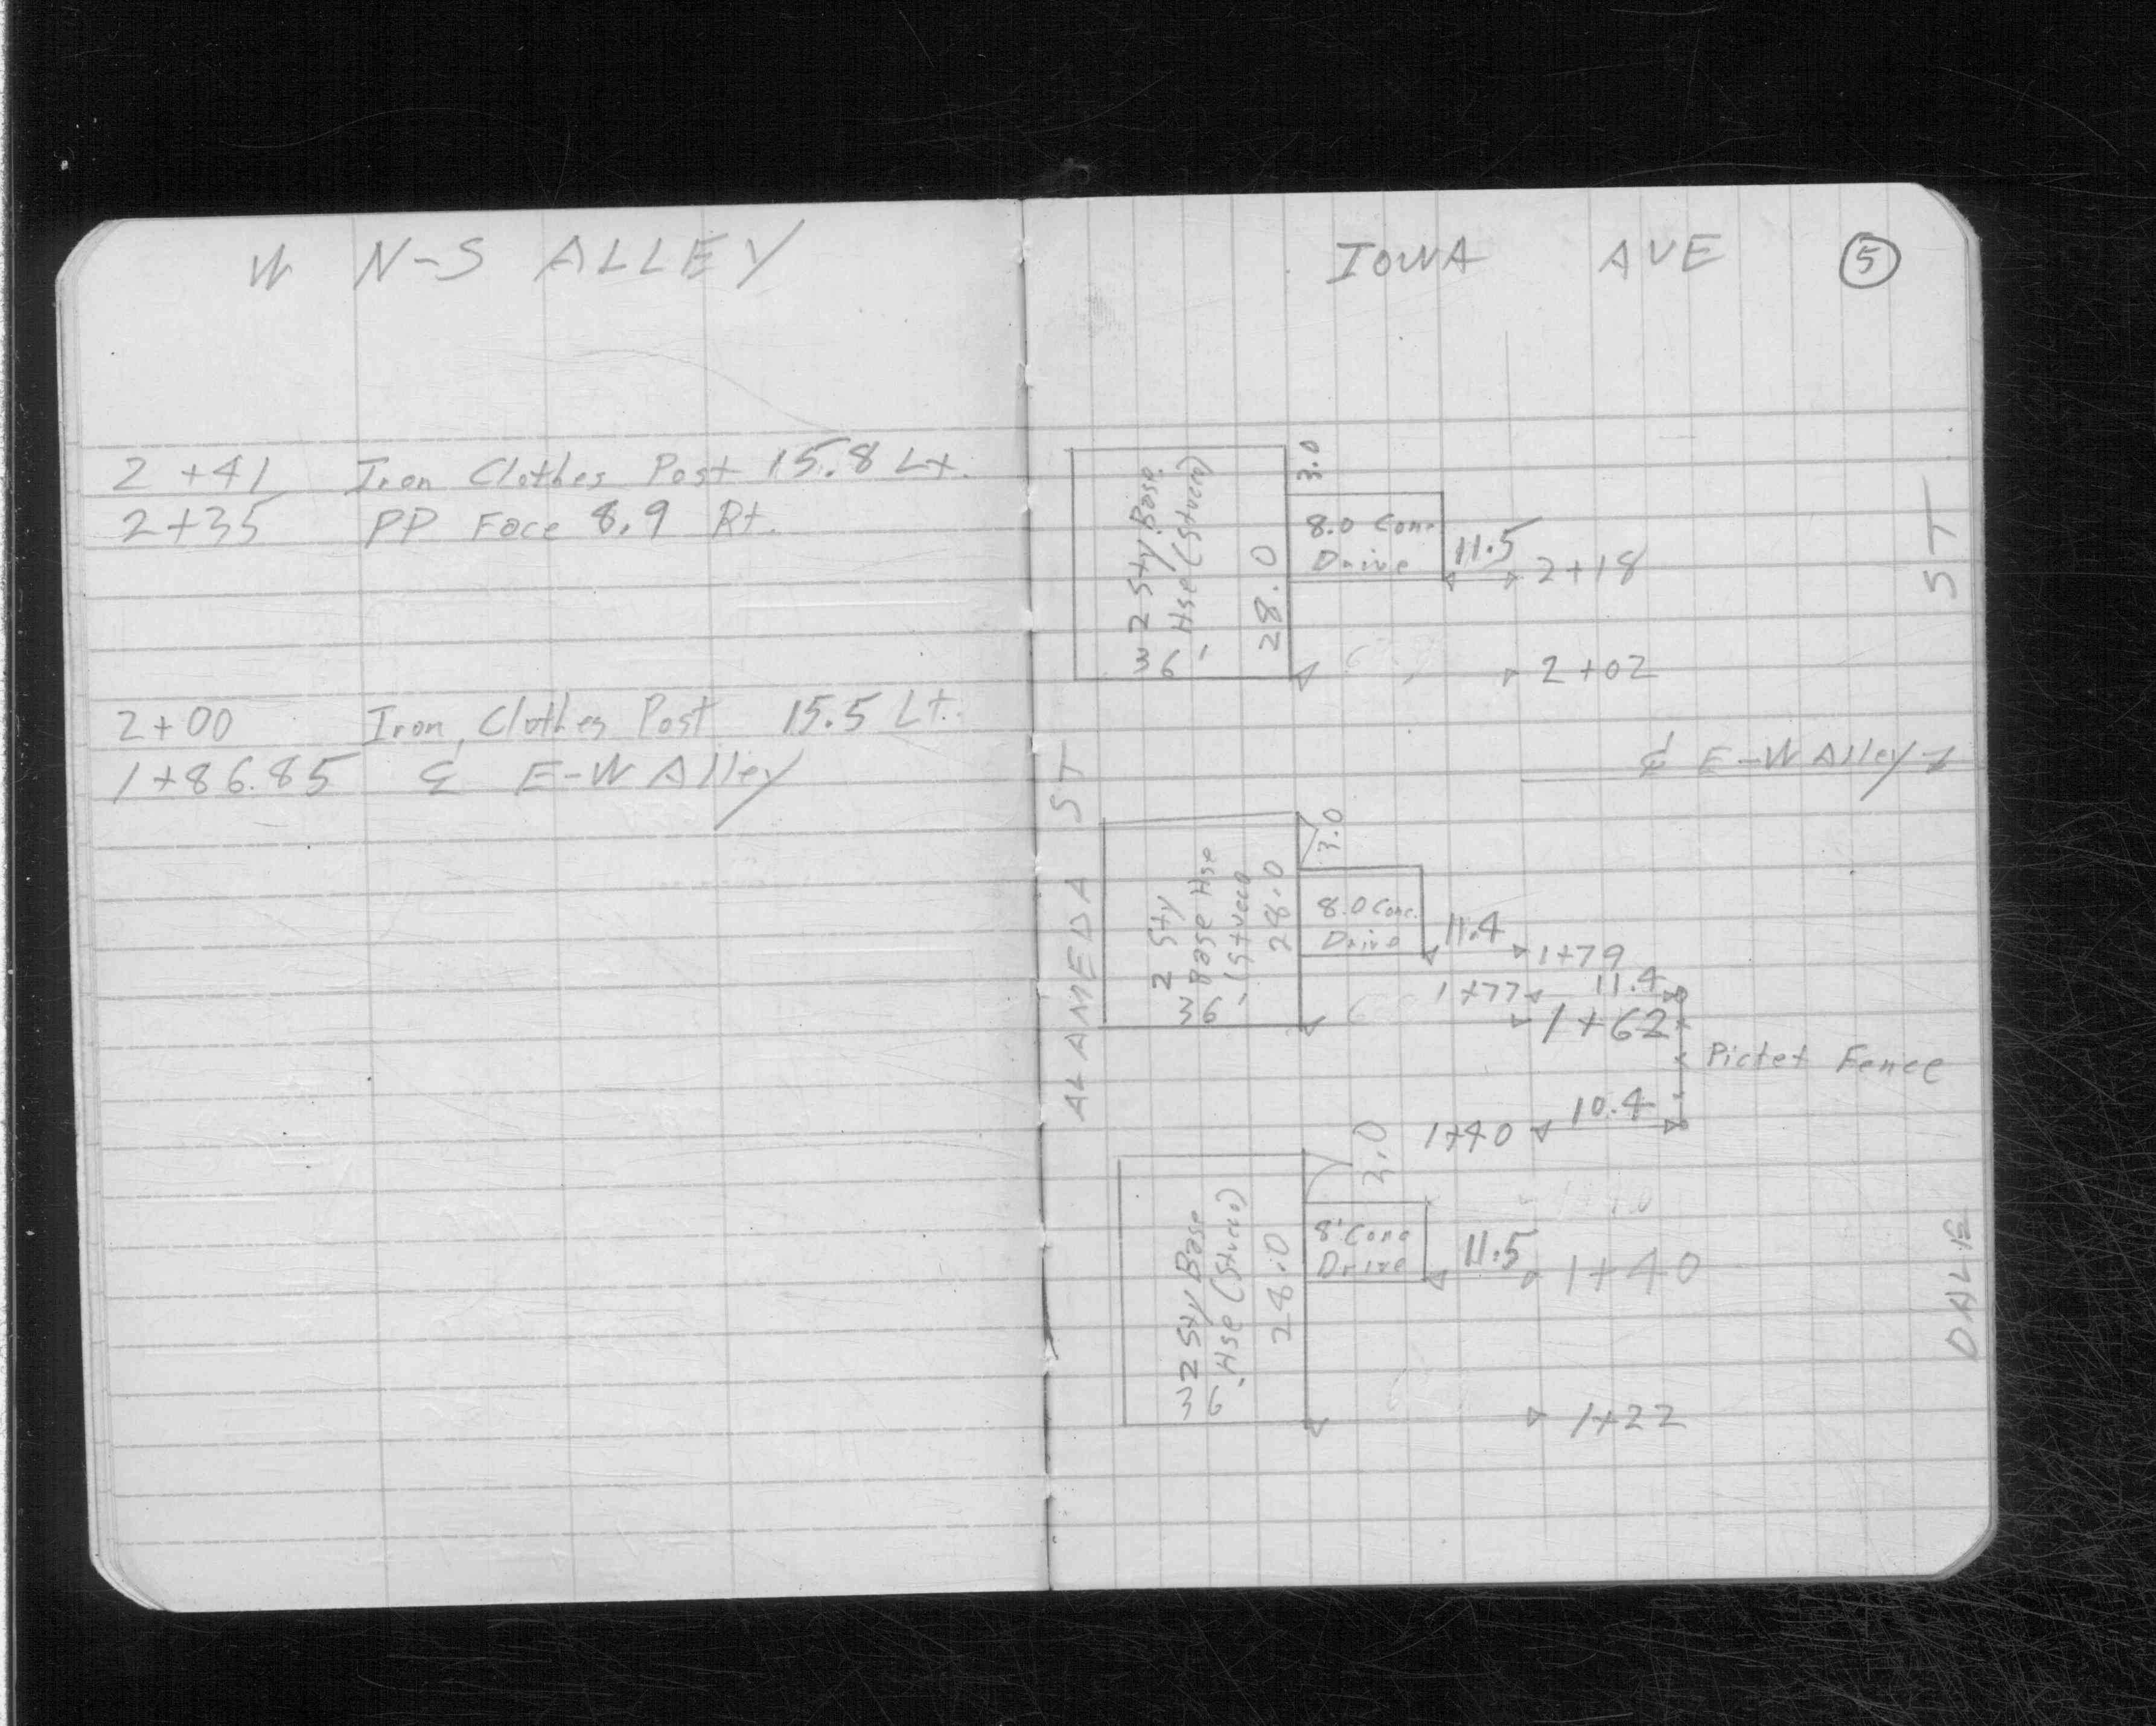 W N-S ALLEY
2+41 Iron Clothes Post 15.8 Lt.
2+35 PP Face 8.9 Rt.
2+00 Iron Clothes Post 15.5 Lt.
1+86.85 ℄ E-W Alley
IOWA AVE 5
ALAMEDA ST
DALE ST
2 Sty. Base.
Hse (Stucco)
36'
28.0
3.0
8.0 Conc.
Drive
11.5 2+18
2+02
℄ E-W Alley
2 Sty
Base Hse
(Stucco
36'
28.0
3.0
8.0 Conc.
Drive
11.4 1+79
1+77 11.4
1+62
Picket Fence
1+40 10.4
2 Sty Base
Hse (Stucco)
36'
28.0
3.0
8' Conc
Drive
11.5 1+40
1+22